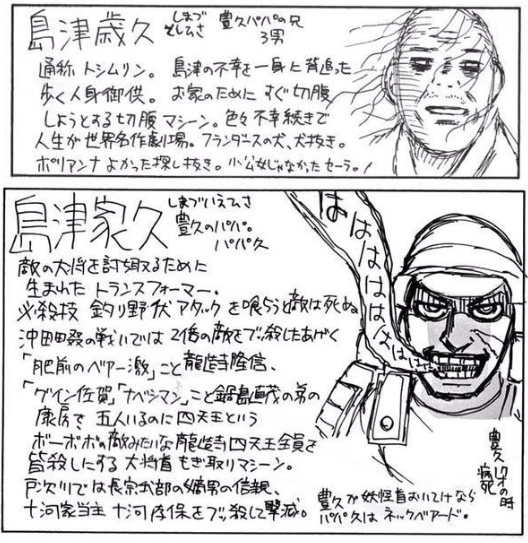 島津歳久
しまづ
としひさ
豊久パパの兄
3男
通称トシムリン。島津の不幸を一身に背追った
歩く人身御供。お家のために すぐ切腹
しようとする切腹マシーン。色々不幸続きで
人生が世界名作劇場。フランダースの犬、犬抜き。
ポリアンナよかった探し抜き。小公女じゃなかったセーラ。!
島津家久
しまづいえひさ
豊久のパパ。
パパ久
敵の大将を討ち取るために
生まれたトランスフォーマー。
必殺技 釣り野伏アタックを喰らうと敵は死ぬ
沖田畷の戦いでは2倍の敵をブッ殺したあげく
「肥前のベアー激」こと龍造寺隆信、
「グイン佐賀」「ナベシマン」こと鍋島直茂の弟の
康房を 五人いるのに四天王という
ボーボボの敵みたいな龍造寺四天王全員を
皆殺しにする 大将首もぎ取りマシーン。
戸次川では長宗我部の嫡男の信親、
十河家当主 十河存保をブッ殺して撃滅。
はははははははははは
豊久 17才の時
病死
豊久が妖怪首おいてけなら
パパ久はネックベアード。